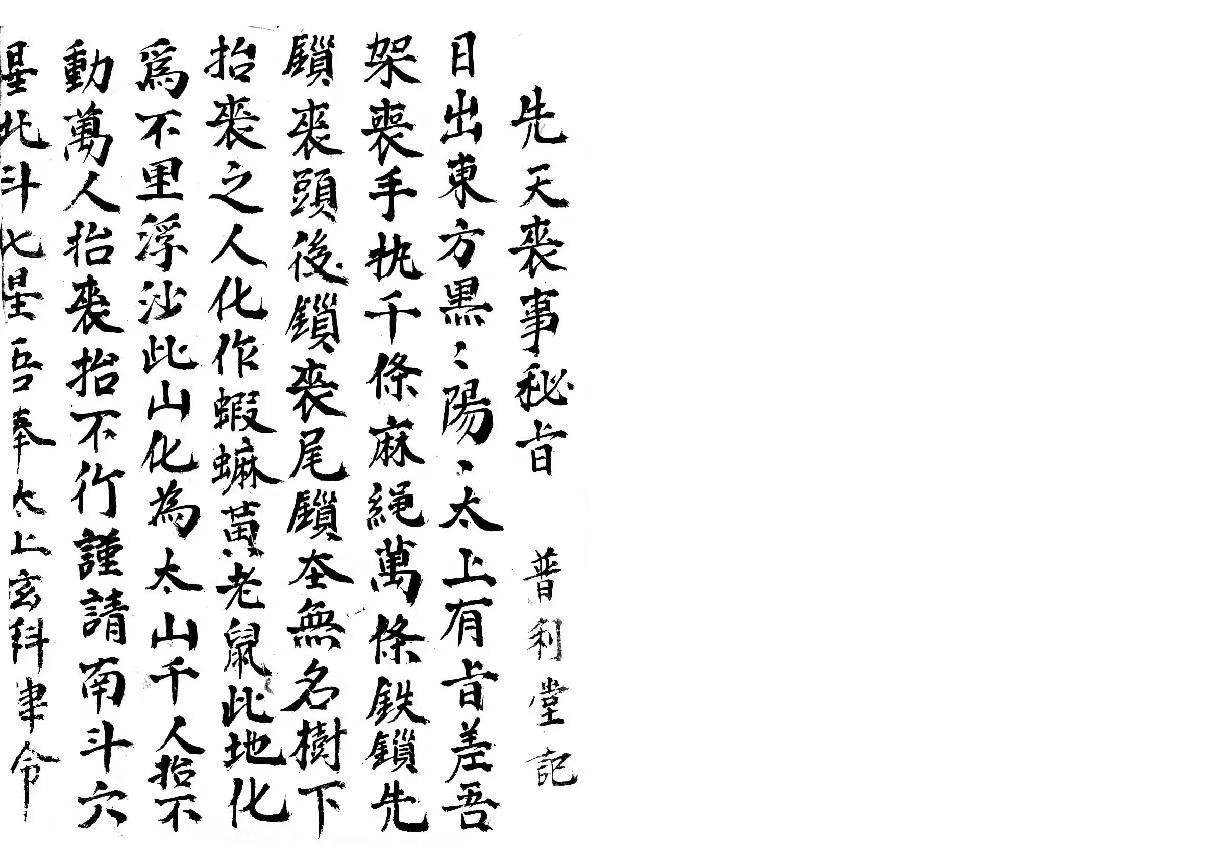 先天丧事秘旨 普利堂記
日出東方黑〻陽〻太上有旨差吾
架喪手执千條麻繩萬條鉄鎖先
鎖丧頭後鎖丧尾鎖在無名樹下
抬丧之人化作蝦蟆黃老鼠此地化
為不里浮沙此山化為太山千人抬不
動萬人抬丧抬不行謹請南斗六
星北斗七星吾奉太上玄科律令